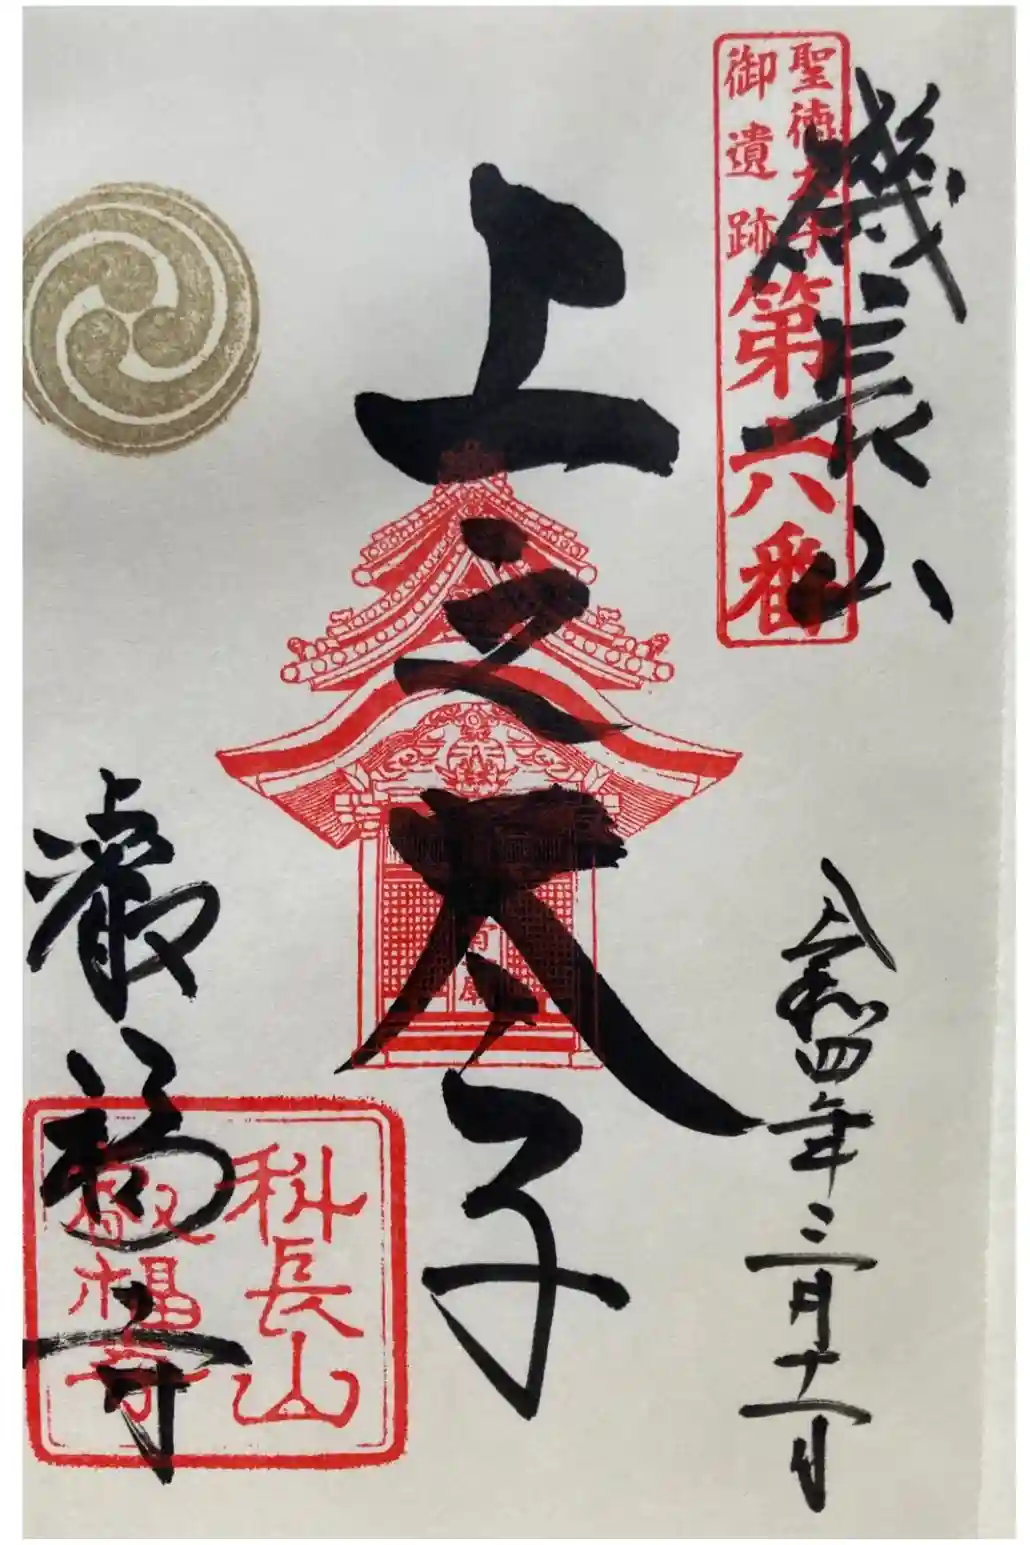 聖徳太子
御遺跡
第六番
磯長山
令和四年三月十一日
上之太子
叡福寺
科長山
叡福寺